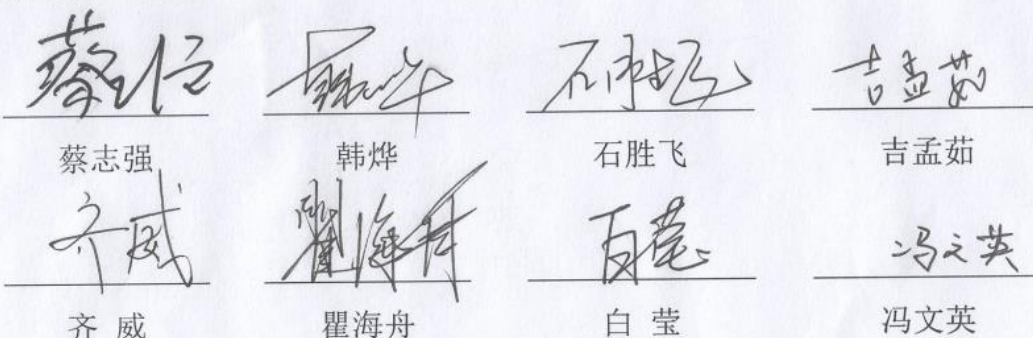 蔡志强 韩烨 石胜飞 吉孟茹
蔡志强 韩烨 石胜飞 吉孟茹
齐威 瞿海舟 白莹 冯文英
齐 威 瞿海舟 白 莹 冯文英